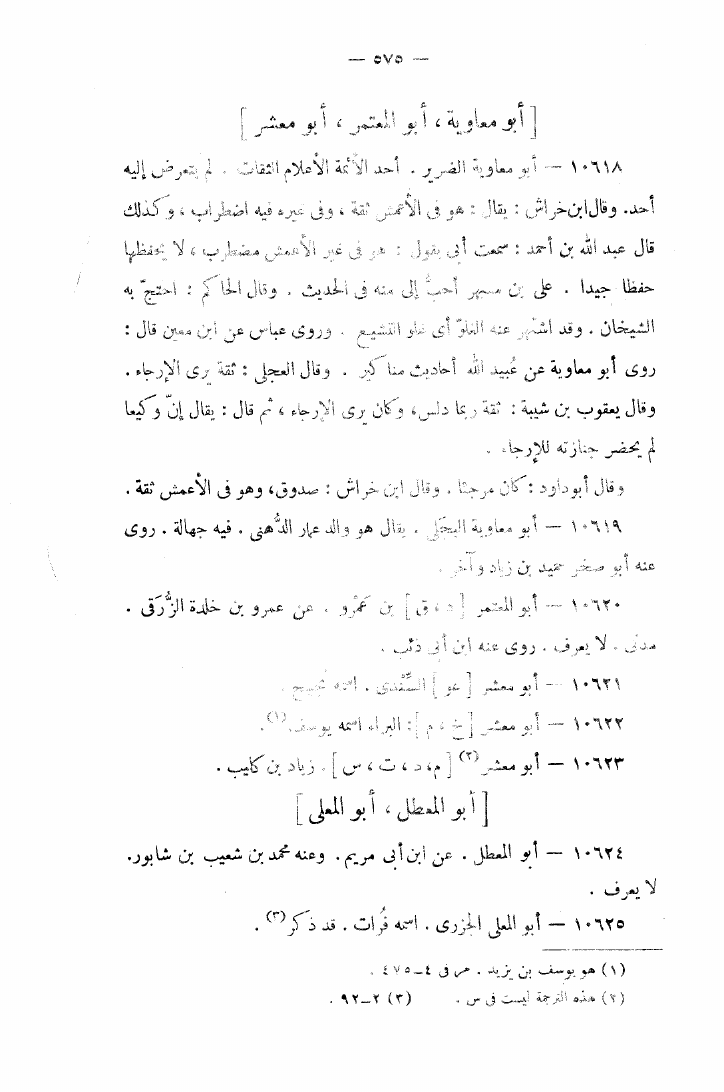 — ٥٧٥ —
[ أبو معاوية ، أبو المعتمر ، أبو معشر ]
١٠٦١٨ — أبو معاوية الضرير . أحد الأئمة الأعلام الثقات . لم يتعرض إليه
أحد. وقال ابن خراش : يقال : هو فى الأعمش ثقة ، وفى غيره فيه اضطراب ، وكذلك
قال عبد الله بن أحمد : سمعت أبى يقول : هو فى غير الأعمش مضطرب ، لا يحفظها
حفظا جيدا . على بن مسهر أحبُّ إلى منه فى الحديث . وقال الحاكم : احتجّ به
الشيخان . وقد اشتهر عنه الغلوّ أى غلو التشيع . وروى عباس عن ابن معين قال :
روى أبو معاوية عن عُبيد الله أحاديث مناكير . وقال العجلى : ثقة يرى الإرجاء .
وقال يعقوب بن شيبة : ثقة ربما دلس، وكان يرى الإرجاء ، ثم قال : يقال إنّ وكيعا
لم يحضر جنازته للإرجاء .
وقال أبو داود : كان مرجئا . وقال ابن خراش : صدوق، وهو فى الأعمش ثقة .
١٠٦١٩ — أبو معاوية البجَلى . يقال هو والد عمار الدُّهنى . فيه جهالة . روى
عنه أبو صخر حميد بن زياد وآخر .
١٠٦٢٠ — أبو المعتمر [ د ، ق ] بن عَمْرو . عن عمرو بن خلدة الزُّرَقى .
مدنى . لا يعرف . روى عنه ابن أبى ذئب .
١٠٦٢١ — أبو معشر [ عو ] السِّنْدى . اسمه نجيح .
١٠٦٢٢ — أبو معشر [ خ ، م ] : البراء اسمه يوسف(١).
١٠٦٢٣ — أبو معشر(٢) [ م، د ، ت ، س ] . زياد بن كليب .
[ أبو المعطل ، أبو المعلى ]
١٠٦٢٤ — أبو المعطل . عن ابن أبى مريم . وعنه محمد بن شعيب بن شابور.
لا يعرف .
١٠٦٢٥ — أبو المعلى الجزرى . اسمه فُرات . قد ذكر(٣) .
(١) هو يوسف بن يزيد . مر فى ٤ــ٤٧٥ .
(٢) هذه الترجمة ليست فى س . (٣) ٢ــ٩٢ .